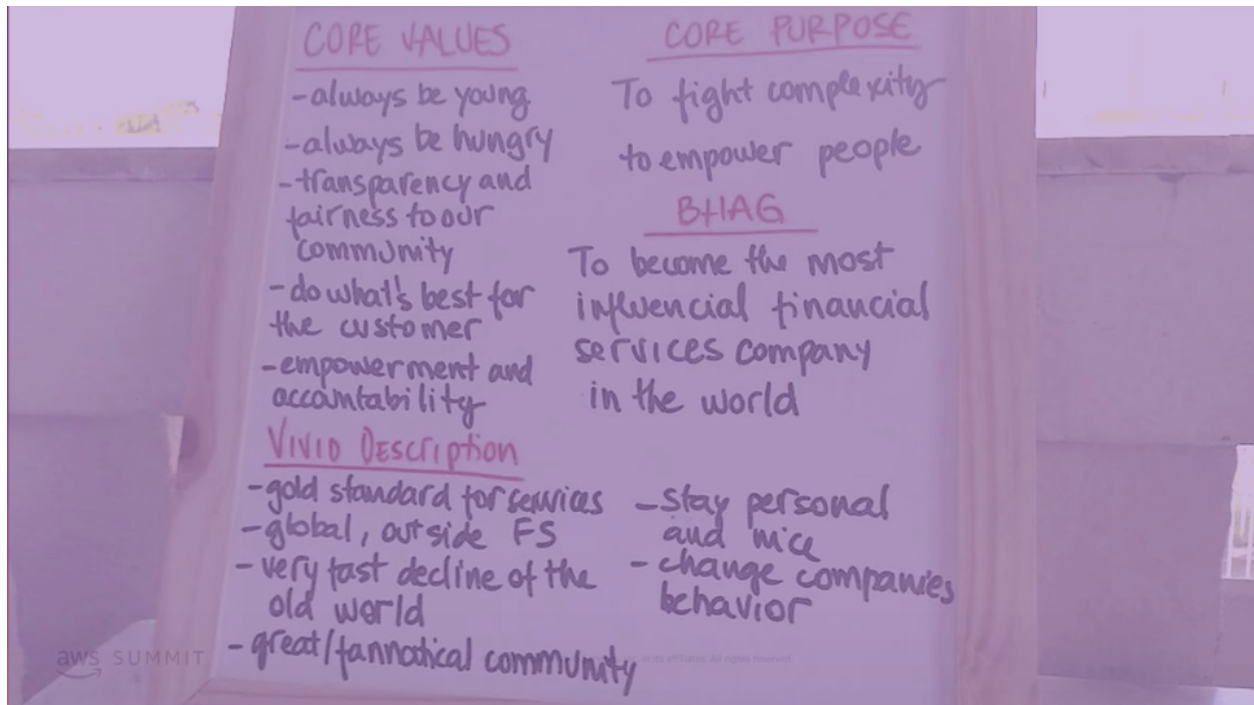 CORE VALUES
-always be young
-always be hungry
-transparency and
fairness to our
community
-do what's best for
the customer
-empowerment and
accountability
CORE PURPOSE
To fight complexity
to empower people
BHAG
To become the most
influencial financial
services company
in the world
VIVID DEscription
-gold standard for services
-global, outside FS
-very fast decline of the
old world
-great/fannatical community
-stay personal
and nice
-change companies
behavior
aws SUMMIT
or its affiliates. All rights reserved.